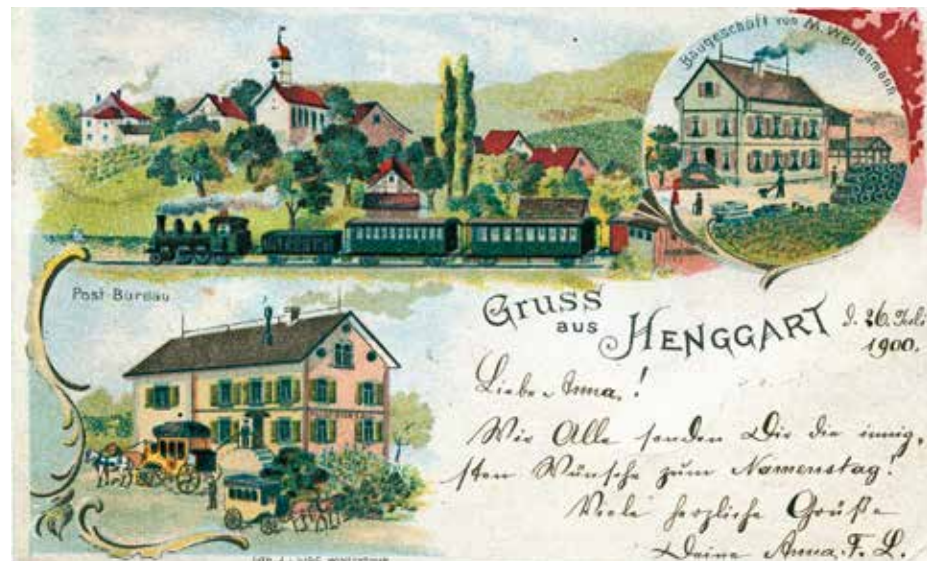 Baugeschäft von M. Weilenmann
Post-Bureau
Gruss
aus
HENGGART
d. 26. Juli
1900.
Liebe Anna!
Wir Alle senden Dir die innig-
sten Wünsche zum Namenstag!
Viele herzliche Grüße
Deine Anna. F. L.